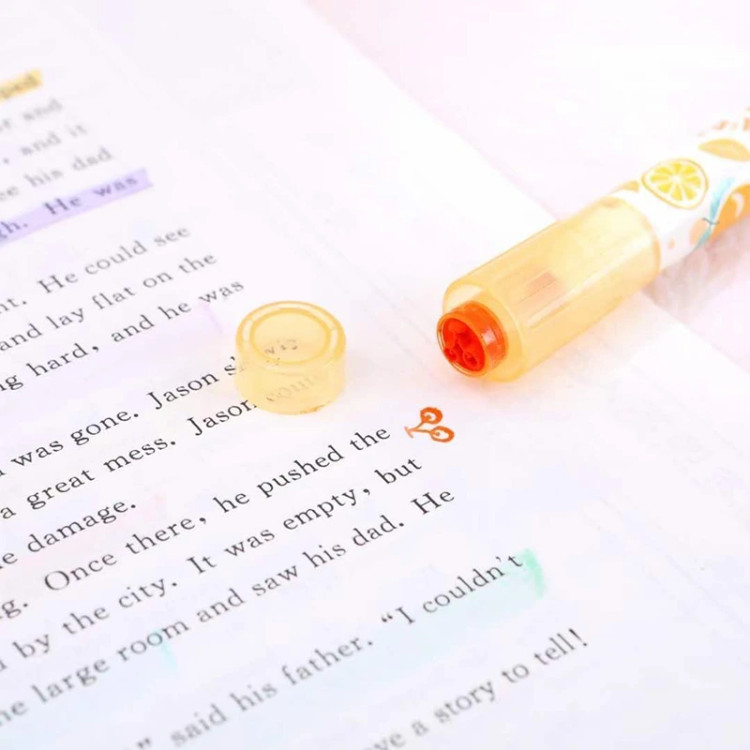 or and
, and it
ee his dad
gh. He was
nt. He could see
and lay flat on the
ng hard, and he was
was gone. Jason
a great mess. Jason
e damage.
g. Once there, he pushed the
by the city. It was empty, but
he large room and saw his dad. He
said his father. “I couldn't
ve a story to tell!